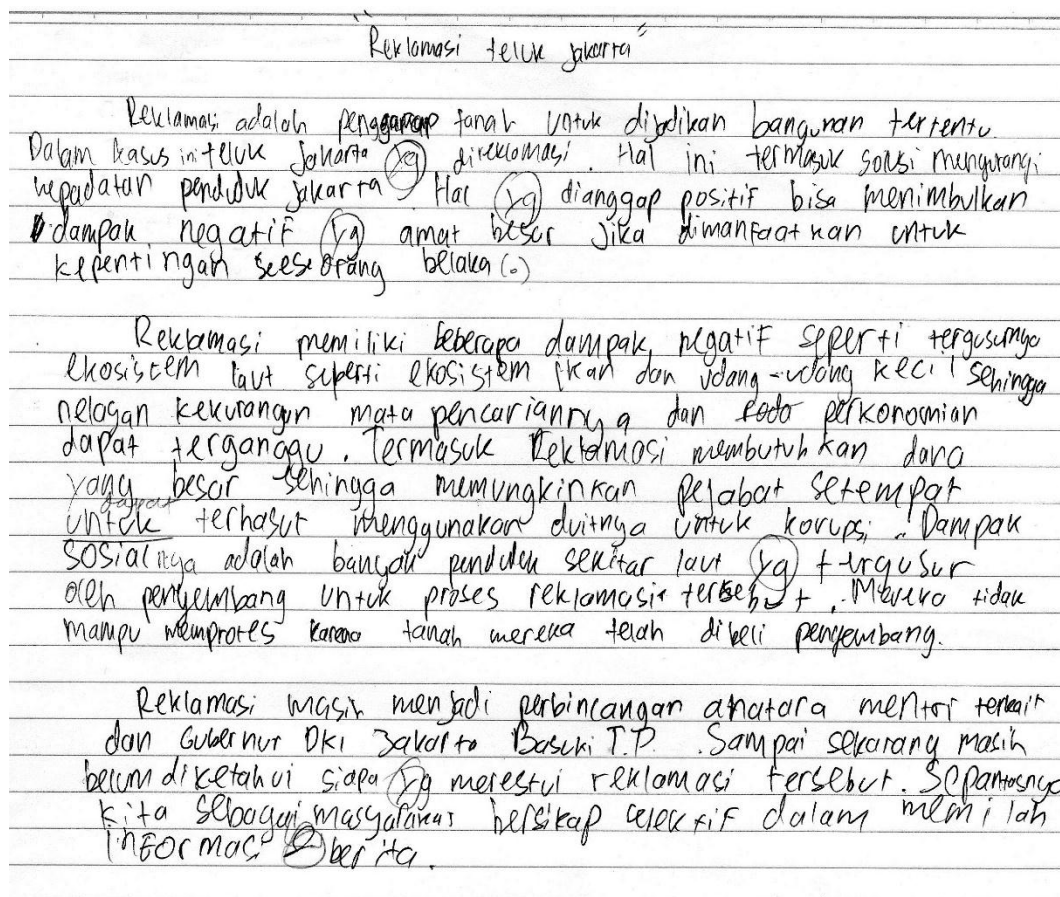 "Reklamasi teluk jakarta"
Reklamasi adalah penggarap tanah untuk dijadikan bangunan tertentu.
Dalam kasus ini teluk Jakarta yg direklamasi. Hal ini termasuk solusi mengurangi
kepadatan penduduk jakarta. Hal yg dianggap positif bisa menimbulkan
dampak negatif yg amat besar jika dimanfaatkan untuk
kepentingan seseorang belaka(.)
Reklamasi memiliki beberapa dampak negatif seperti tergusurnya
ekosistem laut seperti ekosistem ikan dan udang-udang kecil sehingga
nelayan kekurangan mata pencariannya dan perkonomian
dapat terganggu. Termasuk Reklamasi membutuhkan dana
yang besar sehingga memungkinkan pejabat setempat
dapat
untuk terhasut menggunakan duitnya untuk korupsi. Dampak
sosialnya adalah banyak penduduk sekitar laut yg tergusur
oleh pengembang untuk proses reklamasi tersebut. Mereka tidak
mampu memprotes karena tanah mereka telah dibeli pengembang.
Reklamasi masih menjadi perbincangan anatara mentri terkait
dan Gubernur DKI Jakarta Basuki T.P. Sampai sekarang masih
belum diketahui siapa yg merestui reklamasi tersebut. Sepantasnya
kita sebagai masyarakat bersikap selektif dalam memilah
informasi & berita.